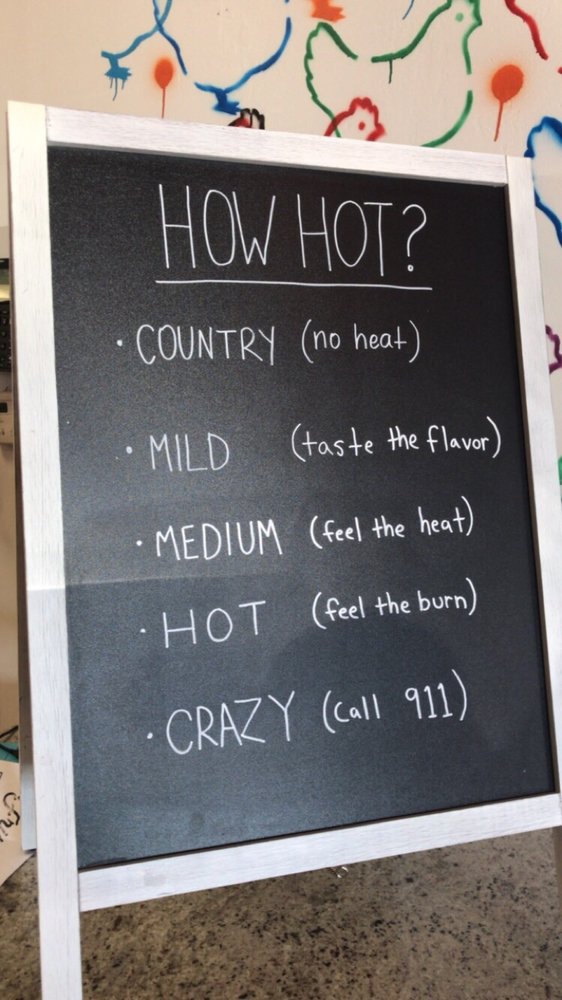 HOW HOT?
· COUNTRY (no heat)
· MILD (taste the flavor)
· MEDIUM (feel the heat)
· HOT (feel the burn)
· CRAZY (call 911)